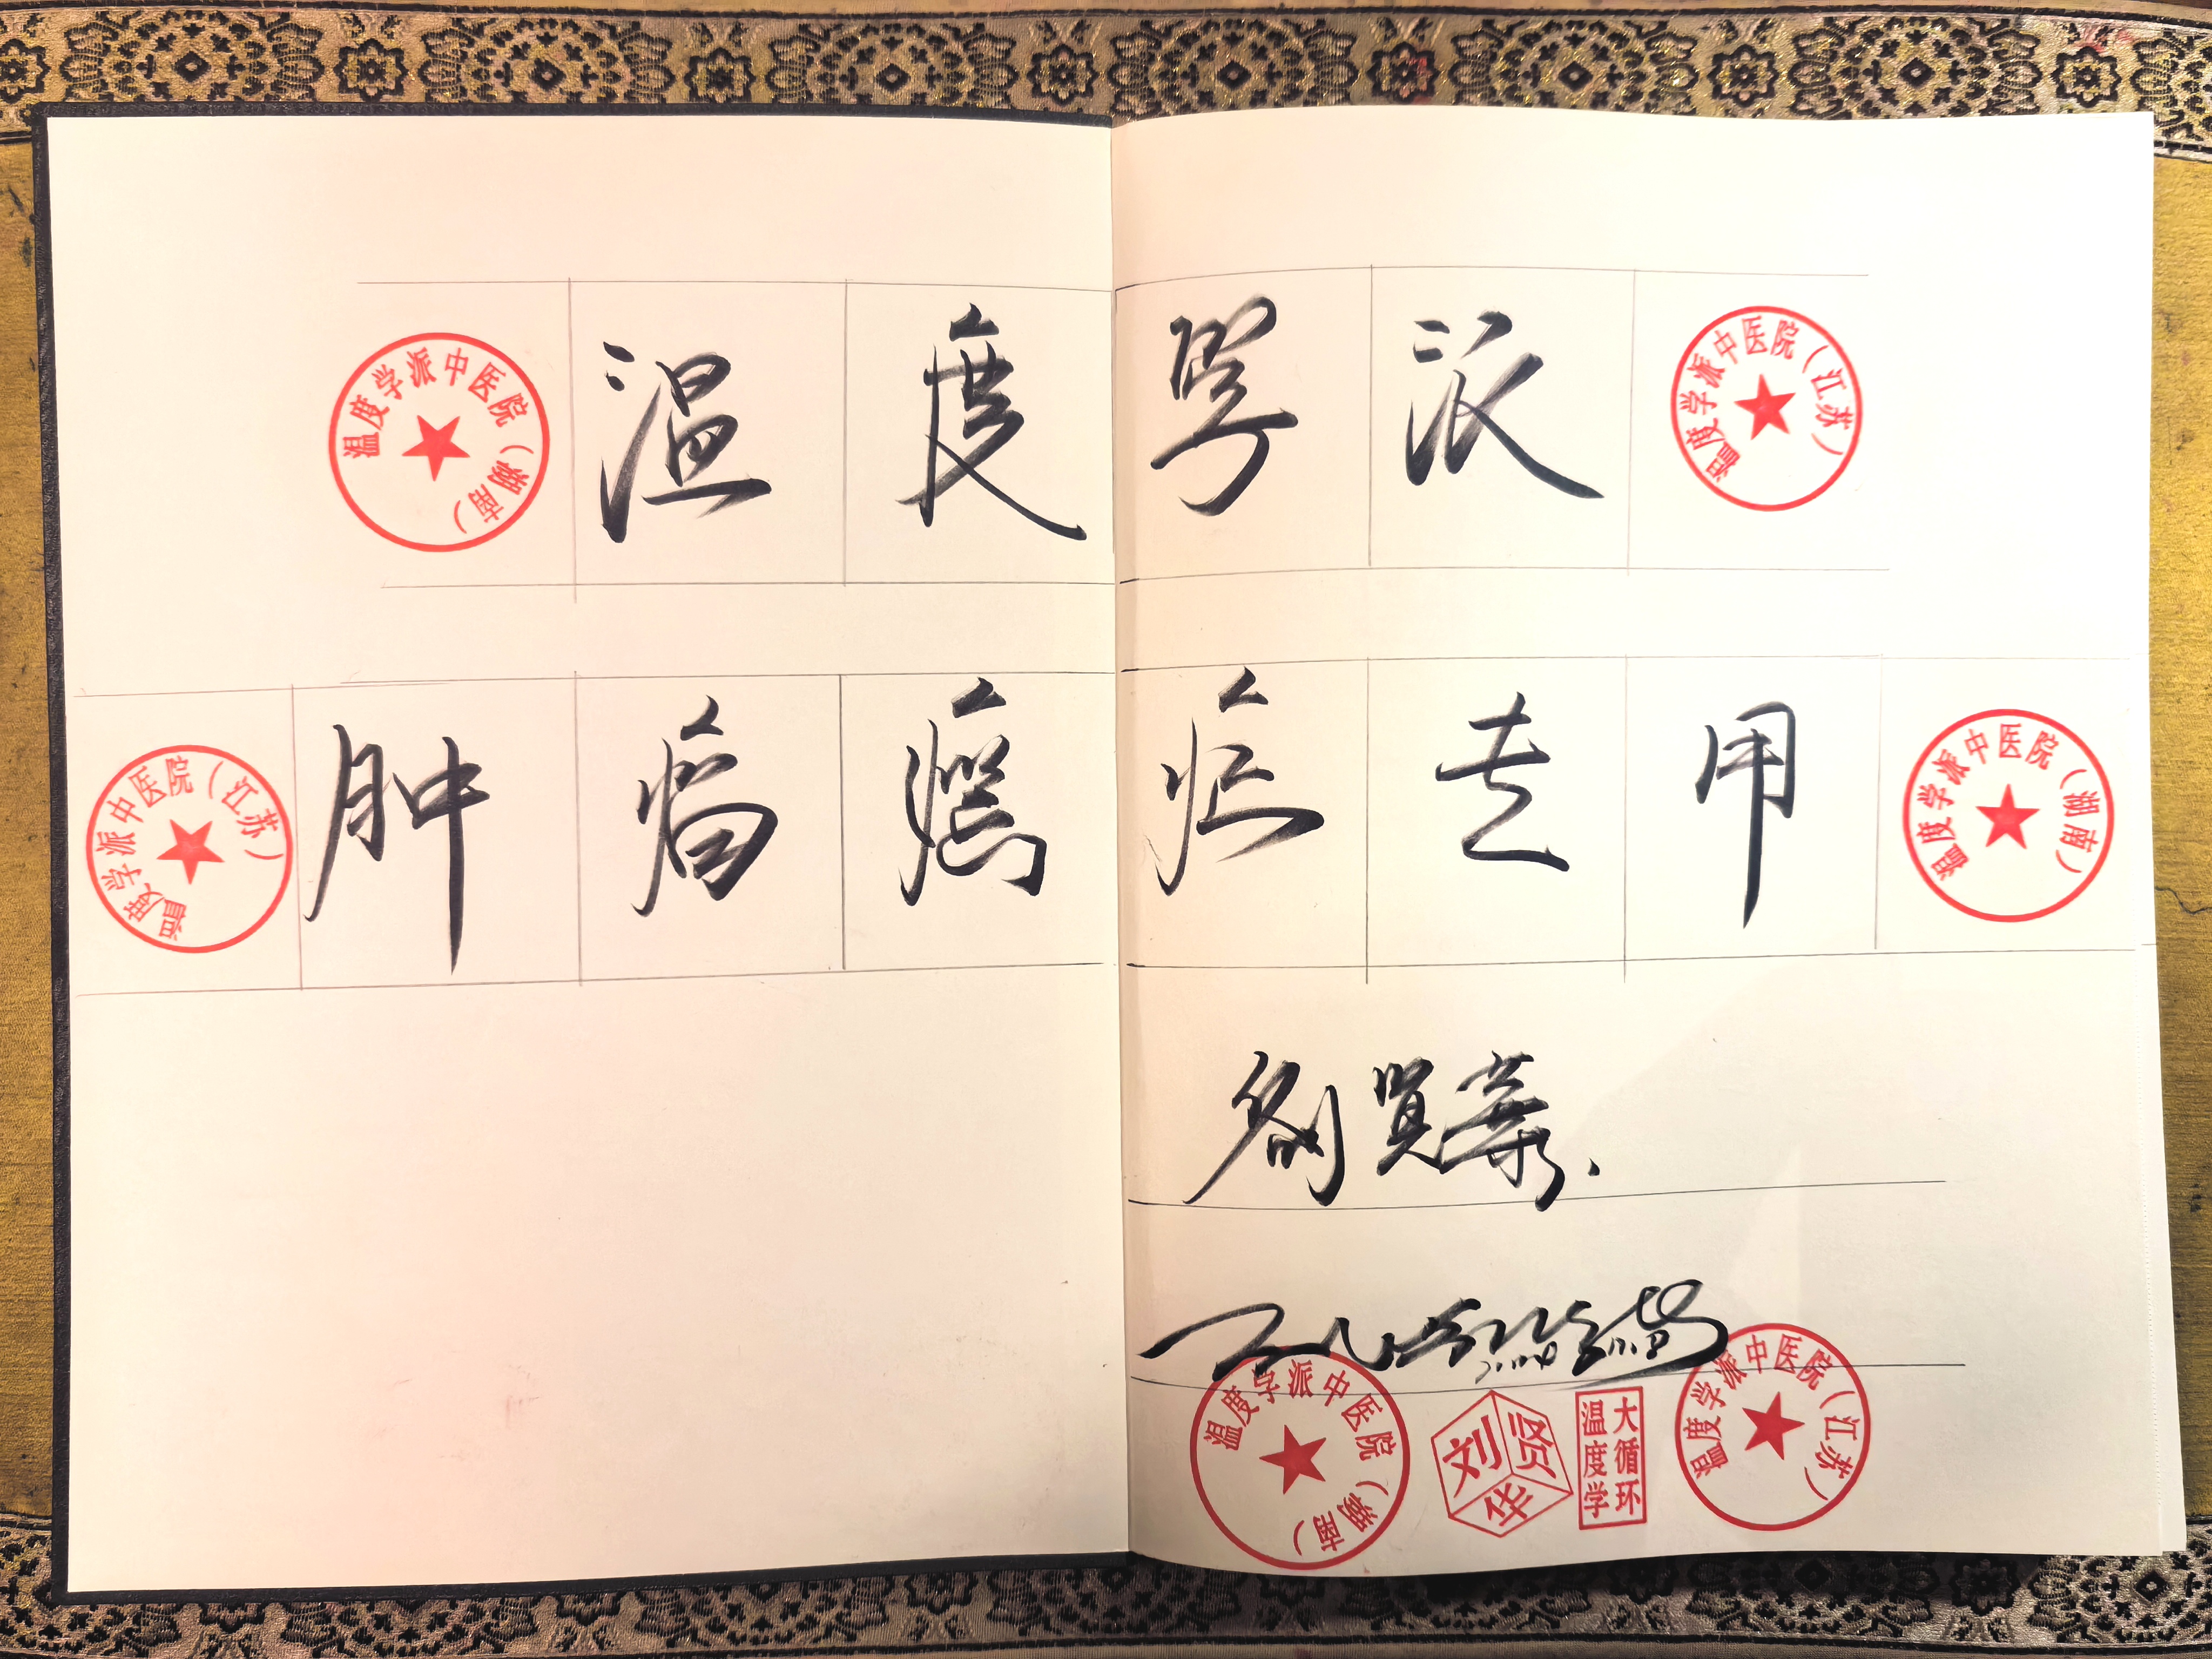 温度学派中医院（湖南）
温度學派
温度学派中医院（江苏）
温度学派中医院（江苏）
肿瘤癌症专用
温度学派中医院（湖南）
劉贤華
温度学派中医院（湖南）
刘贤华
大循环
温度学
温度学派中医院（江苏）